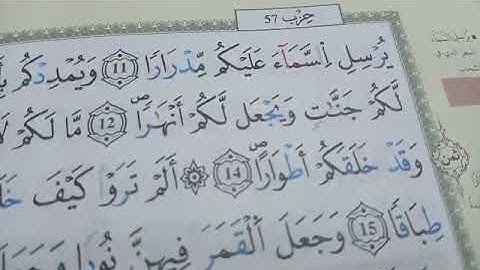 حِزْب 57
يُرْسِلِ اِ۬لسَّمَآءَ عَلَيْكُم مِّدْرَارًا ١١ وَيُمْدِدْكُم
لَّكُمْ جَنَّٰتٍ وَيَجْعَل لَّكُمُۥٓ أَنْهَٰرًا ١٢ مَّا لَكُمْ لَا
وَقَدْ خَلَقَكُمُۥٓ أَطْوَارًا ١٤ أَلَمْ تَرَوْا۟ كَيْفَ
طِبَاقًا ١٥ وَجَعَلَ اَ۬لْقَمَرَ فِيهِنَّ نُورًا وَجَعَلَ